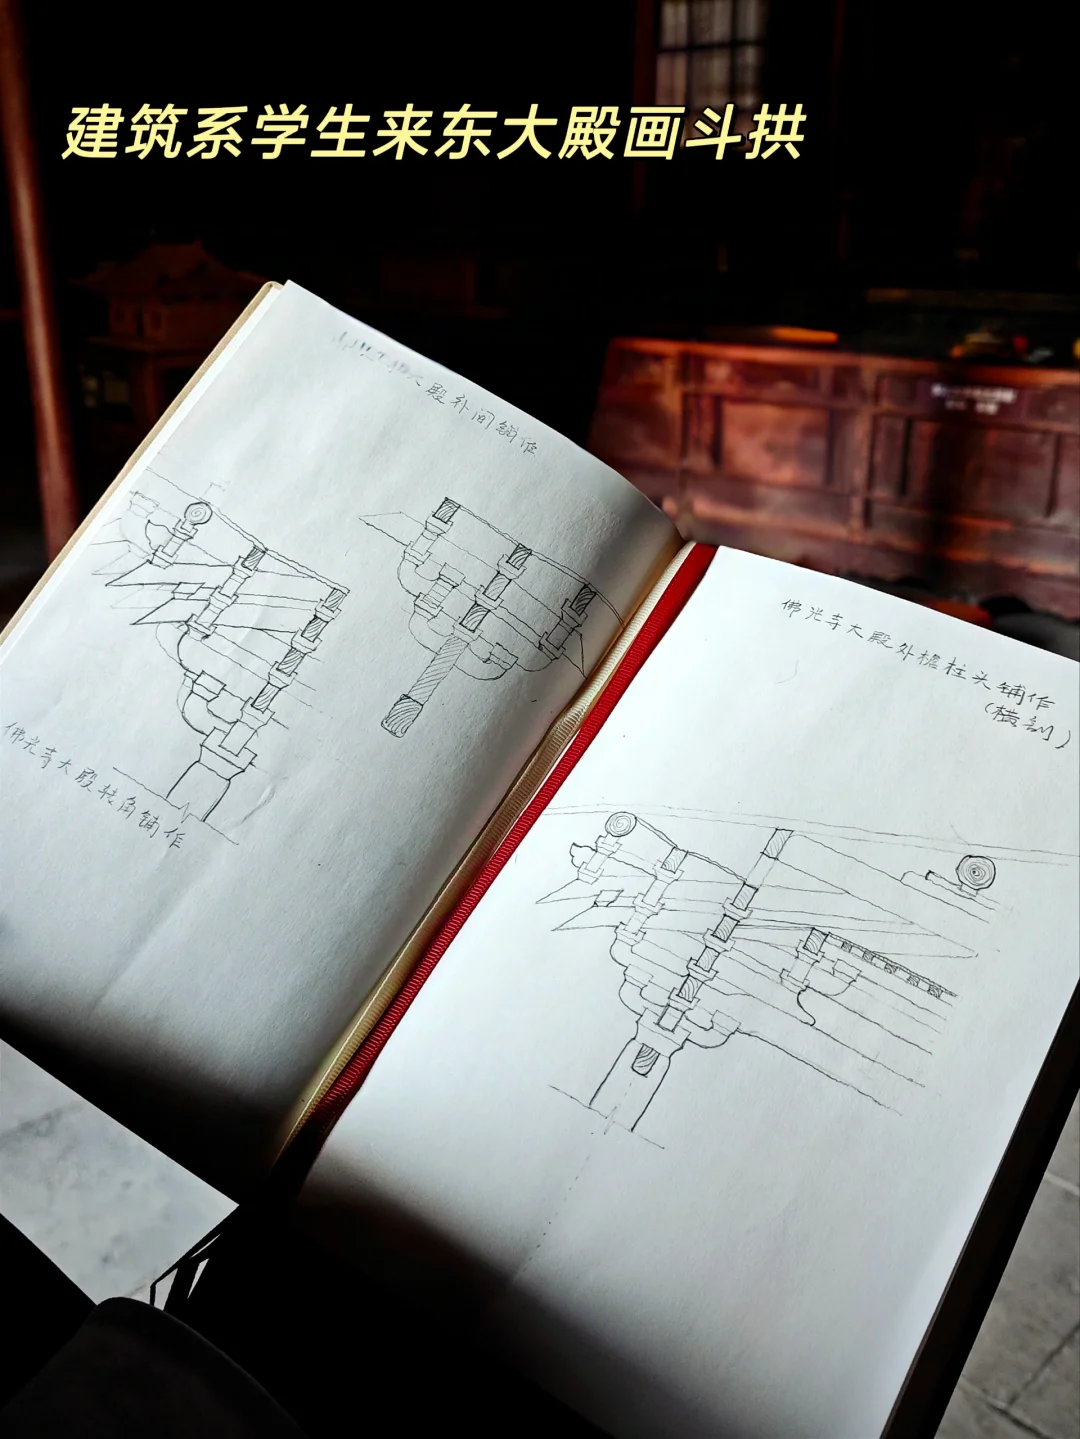 建筑系学生来东大殿画斗拱
大殿补间铺作
佛光寺大殿转角铺作
佛光寺大殿外檐柱头铺作
(横剖)